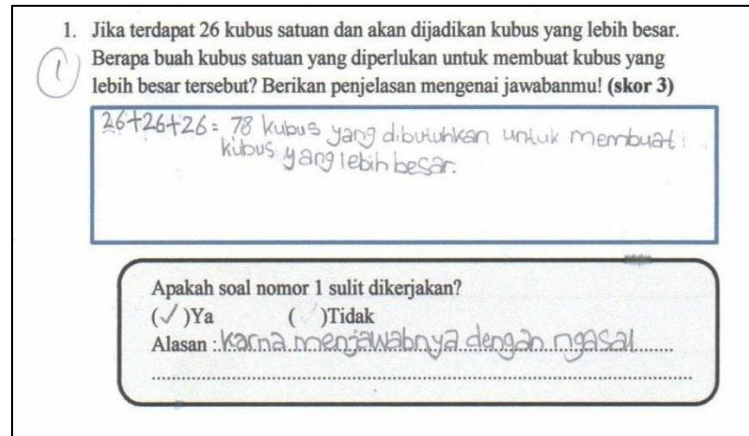 1. Jika terdapat 26 kubus satuan dan akan dijadikan kubus yang lebih besar.
Berapa buah kubus satuan yang diperlukan untuk membuat kubus yang
1
lebih besar tersebut? Berikan penjelasan mengenai jawabanmu! (skor 3)
26+26+26 = 78 kubus yang dibutuhkan untuk membuat
kubus yang lebih besar.
Apakah soal nomor 1 sulit dikerjakan?
(✓)Ya ( )Tidak
Alasan : karna menjawabnya dengan ngasal